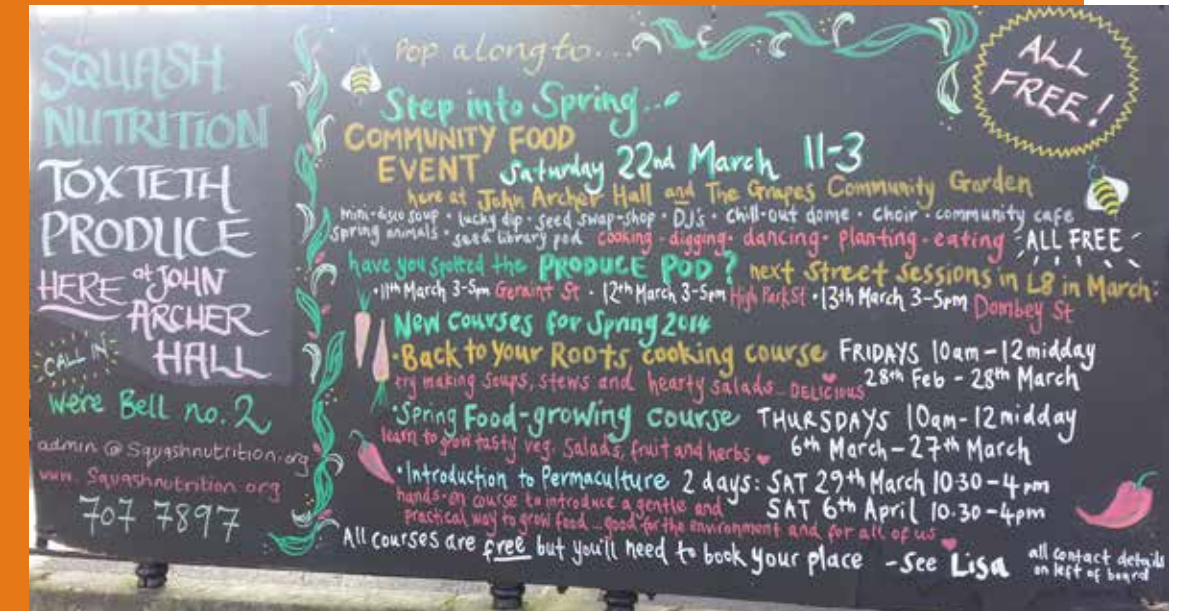 SQUASH
NUTRITION
TOXTETH
PRODUCE
HERE at JOHN
ARCHER
HALL
CALL IN
We're Bell no. 2
admin@squashnutrition.org
www.squashnutrition.org
707 7897
Pop along to...
Step into Spring...
COMMUNITY FOOD
EVENT Saturday 22nd March 11-3
here at John Archer Hall and The Grapes Community Garden
mini-disco soup · lucky dip · seed swap-shop · DJ's · chill-out dome · choir · community cafe
spring animals · seed library pod cooking · digging · dancing · planting · eating ALL FREE
have you spotted the PRODUCE POD? next Street Sessions in L8 in March:
· 11th March 3-5pm Geraint St · 12th March 3-5pm High Park St · 13th March 3-5pm Dombey St
New Courses for Spring 2014
· Back to your Roots cooking course FRIDAYS 10am - 12midday
try making soups, stews and hearty salads... DELICIOUS 28th Feb - 28th March
· Spring Food-growing course THURSDAYS 10am - 12midday
learn to grow tasty veg. Salads, fruit and herbs 6th March - 27th March
· Introduction to Permaculture 2 days: SAT 29th March 10·30 - 4pm
hands-on course to introduce a gentle and SAT 6th April 10.30 - 4pm
practical way to grow food... good for the environment and for all of us
All courses are free but you'll need to book your place - See Lisa
all contact details
on left of board
ALL
FREE!